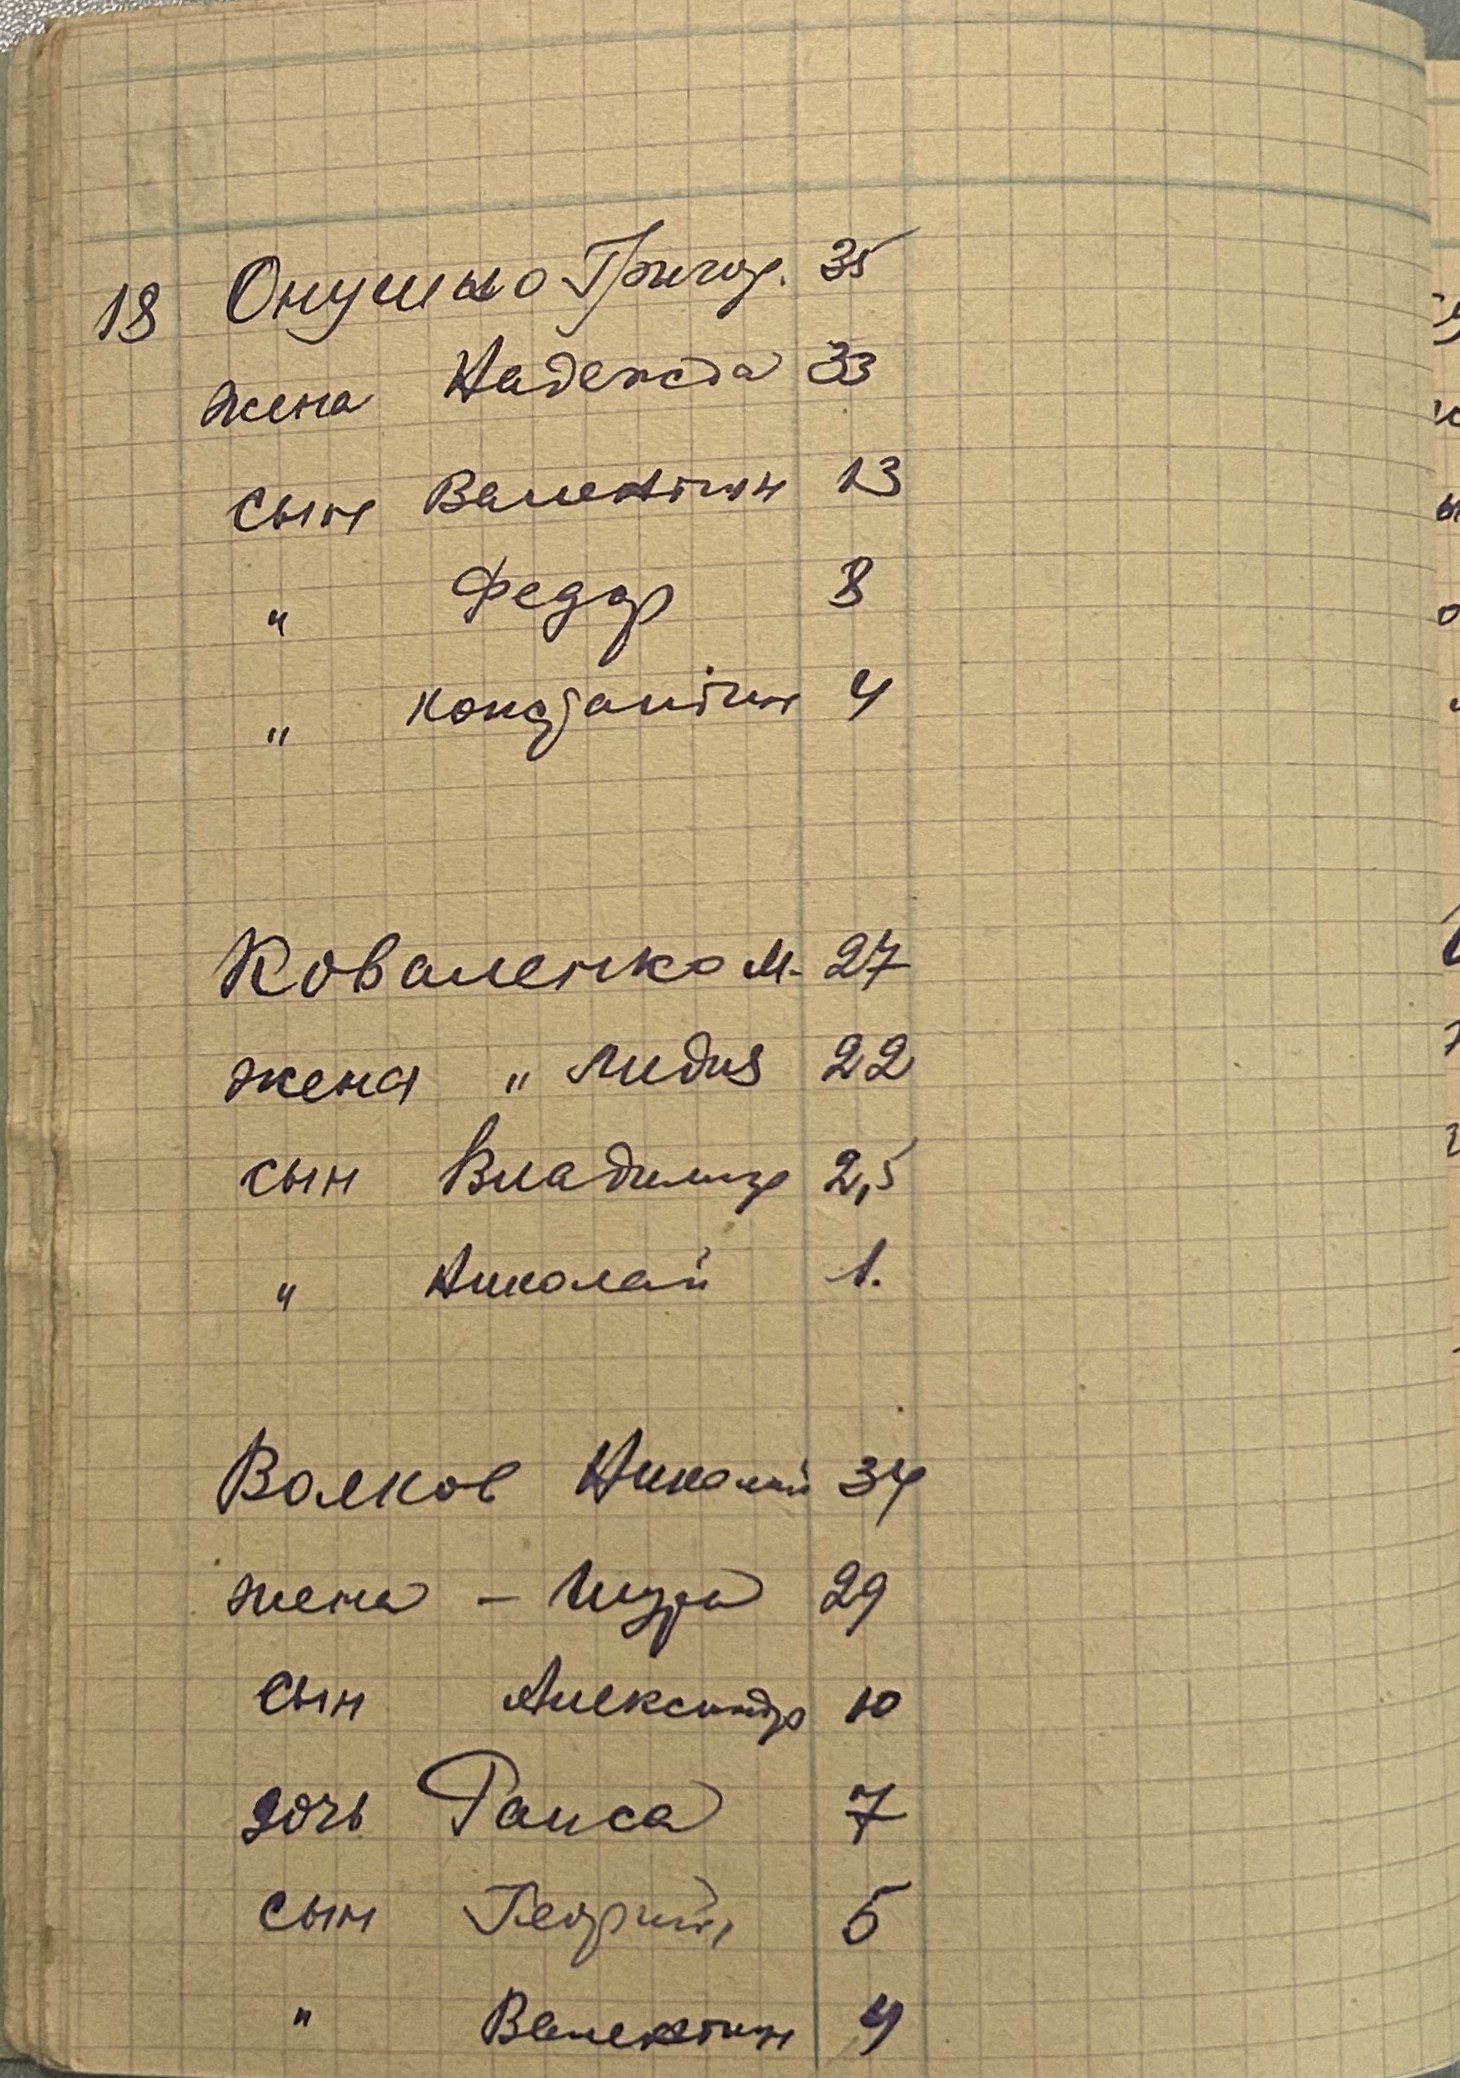 18 Онушко Григор. 35
жена Надежда 33
сын Валентин 13
„ Федор 8
„ Константин 4
Коваленко М. 27
жена „ Лидия 22
сын Владимир 2,5
„ Николай 1.
Волков Николай 34
жена – Шура 29
сын Александр 10
дочь Раиса 7
сын Георгий 5
" Валентин 4